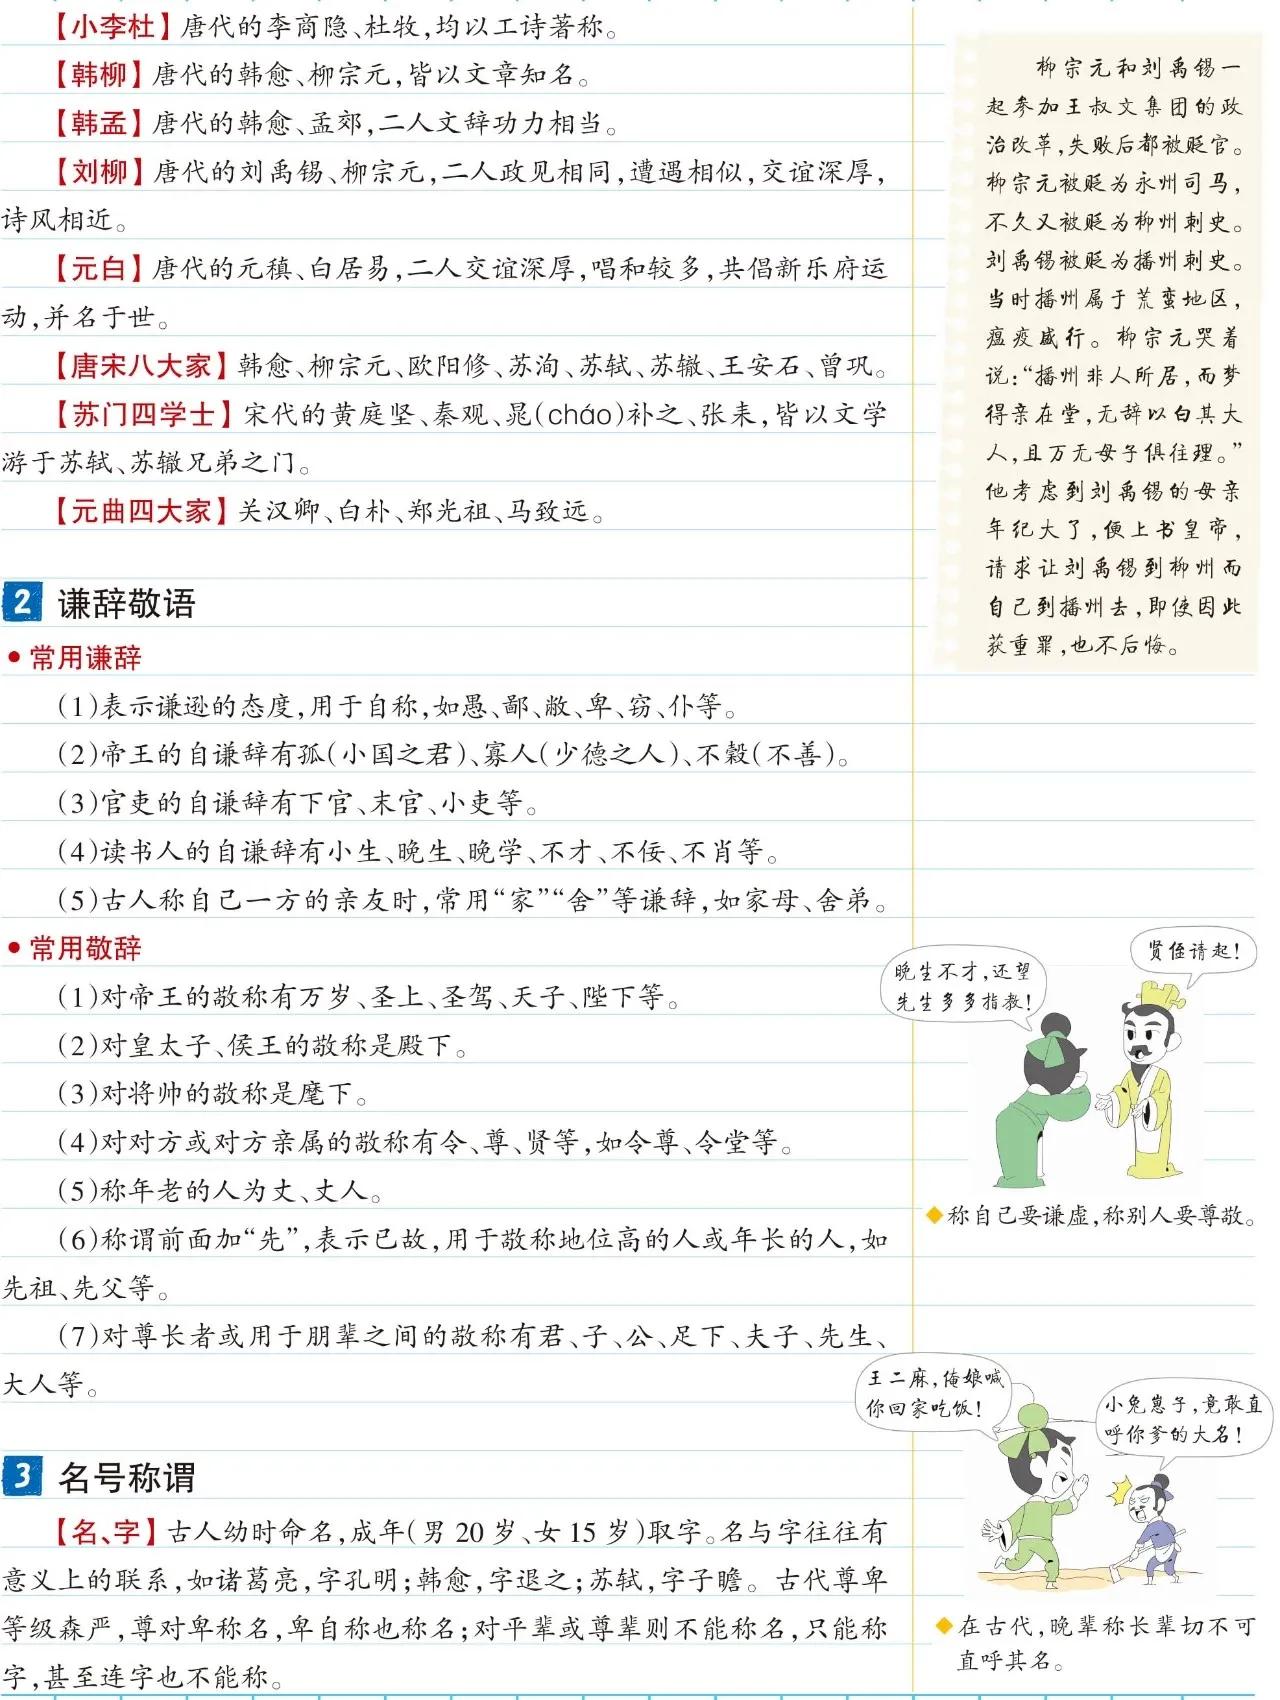 【小李杜】唐代的李商隐、杜牧,均以工诗著称。
【韩柳】唐代的韩愈、柳宗元,皆以文章知名。
【韩孟】唐代的韩愈、孟郊,二人文辞功力相当。
【刘柳】唐代的刘禹锡、柳宗元,二人政见相同,遭遇相似,交谊深厚,
诗风相近。
【元白】唐代的元稹、白居易,二人交谊深厚,唱和较多,共倡新乐府运
动,并名于世。
【唐宋八大家】韩愈、柳宗元、欧阳修、苏洵、苏轼、苏辙、王安石、曾巩。
【苏门四学士】宋代的黄庭坚、秦观、晁(cháo)补之、张耒,皆以文学
游于苏轼、苏辙兄弟之门。
【元曲四大家】关汉卿、白朴、郑光祖、马致远。
柳宗元和刘禹锡一
起参加王叔文集团的政
治改革,失败后都被贬官。
柳宗元被贬为永州司马,
不久又被贬为柳州刺史。
刘禹锡被贬为播州刺史。
当时播州属于荒蛮地区,
瘟疫盛行。柳宗元哭着
说:“播州非人所居,而梦
得亲在堂,无辞以白其大
人,且万无母子俱往理。”
他考虑到刘禹锡的母亲
年纪大了,便上书皇帝,
请求让刘禹锡到柳州而
自己到播州去,即使因此
获重罪,也不后悔。
2 谦辞敬语
•常用谦辞
(1)表示谦逊的态度,用于自称,如愚、鄙、敝、卑、窃、仆等。
(2)帝王的自谦辞有孤(小国之君)、寡人(少德之人)、不穀(不善)。
(3)官吏的自谦辞有下官、末官、小吏等。
(4)读书人的自谦辞有小生、晚生、晚学、不才、不佞、不肖等。
(5)古人称自己一方的亲友时,常用“家”“舍”等谦辞,如家母、舍弟。
•常用敬辞
(1)对帝王的敬称有万岁、圣上、圣驾、天子、陛下等。
(2)对皇太子、侯王的敬称是殿下。
(3)对将帅的敬称是麾下。
(4)对对方或对方亲属的敬称有令、尊、贤等,如令尊、令堂等。
(5)称年老的人为丈、丈人。
(6)称谓前面加“先”,表示已故,用于敬称地位高的人或年长的人,如
先祖、先父等。
(7)对尊长者或用于朋辈之间的敬称有君、子、公、足下、夫子、先生、
大人等。
晚生不才,还望
先生多多指教!
贤侄请起!
◆称自己要谦虚,称别人要尊敬。
3 名号称谓
【名、字】古人幼时命名,成年(男20岁、女15岁)取字。名与字往往有
意义上的联系,如诸葛亮,字孔明;韩愈,字退之;苏轼,字子瞻。古代尊卑
等级森严,尊对卑称名,卑自称也称名;对平辈或尊辈则不能称名,只能称
字,甚至连字也不能称。
王二麻,俺娘喊
你回家吃饭!
小兔崽子,竟敢直
呼你爹的大名!
◆在古代,晚辈称长辈切不可
直呼其名。